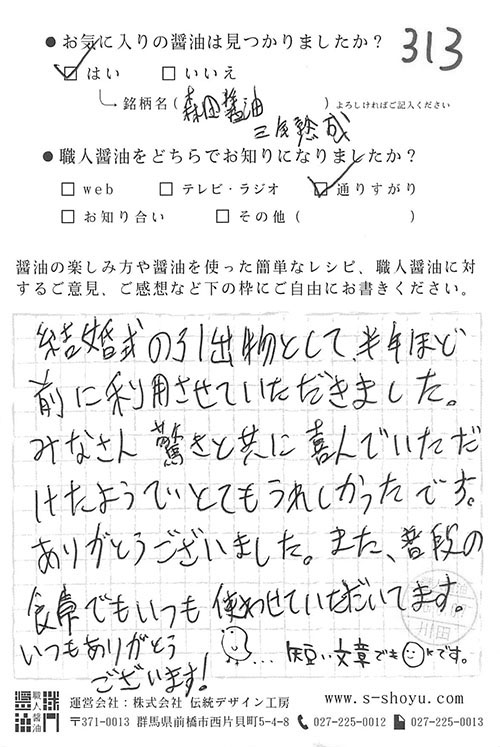 ● お気に入りの醤油は見つかりましたか？ 313
☑ はい □ いいえ
銘柄名（森田醤油 ）よろしければご記入ください
三年熟成
● 職人醤油をどちらでお知りになりましたか？
□ web □ テレビ・ラジオ ☑ 通りすがり
□ お知り合い □ その他（ ）
醤油の楽しみ方や醤油を使った簡単なレシピ、職人醤油に対
するご意見、ご感想など下の枠にご自由にお書きください。
結婚式の引出物として、半年ほど
前に利用させていただきました。
みなさん驚きと共に喜んでいただ
けたようでとてもうれしかったです。
ありがとうございました。また、普段の
食卓でもいつも使わせていただいてます。
いつもありがとう
ございます!
... 短い文章でも okです。
職人醤油
運営会社：株式会社 伝統デザイン工房 www.s-shoyu.com
〒371-0013 群馬県前橋市西片貝町5-4-8 027-225-0012 027-225-0013